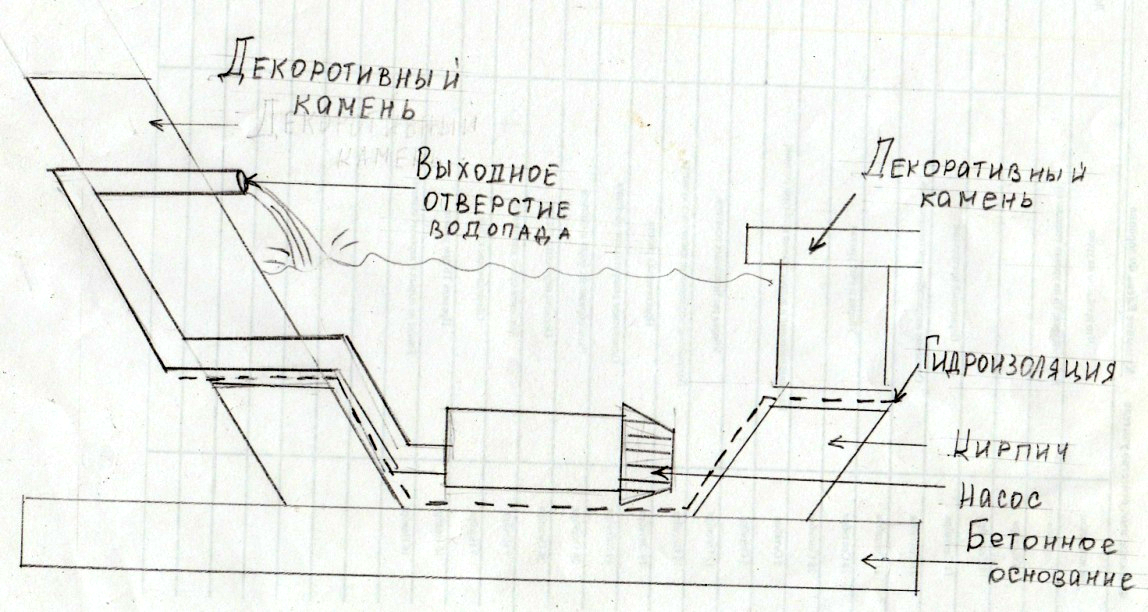 Декоротивный
камень
Декоротивный
камен
Выходное
отверстие
водопада
Декоративный
камень
Гидроизоляция
Кирпич
Насос
Бетонное
основание